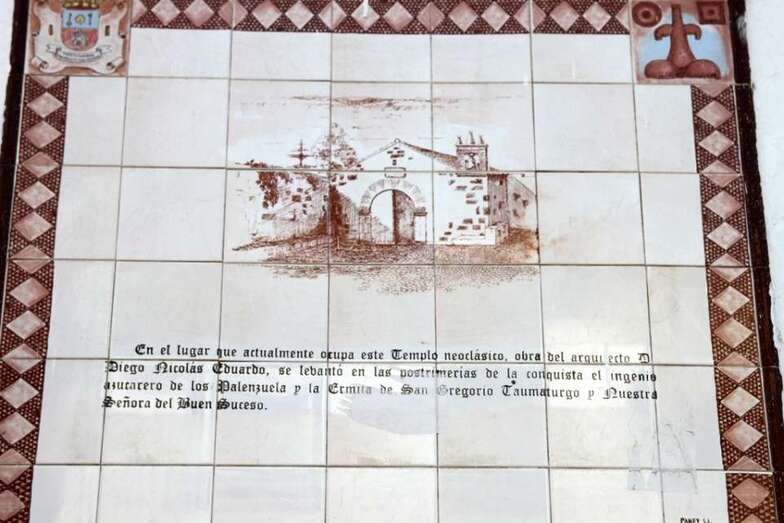 En el lugar que actualmente ocupa este Templo neoclásico, obra del arqui ecto D
Diego Nicolás Eduardo, se lebantó en las postrimerías de la conquista el ingenio
azucarero de los Palenzuela y la Ermita de San Gregorio Taumaturgo y Nuestra
Señora del Buen Suceso.